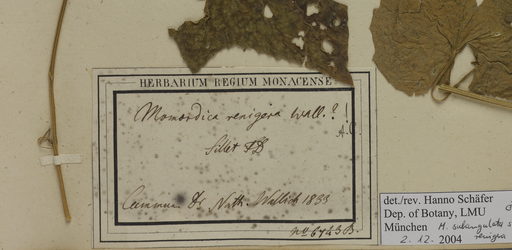 HERBARIUM REGIUM MONACENSE
Momordica renigera Wall.?
Sillet FD
Commun. Dr. Nath. Wallich 1833
No. 6743B.
det./rev. Hanno Schäfer
Dep. of Botany, LMU
München M. subangulata s
2. 12. 2004 renigera